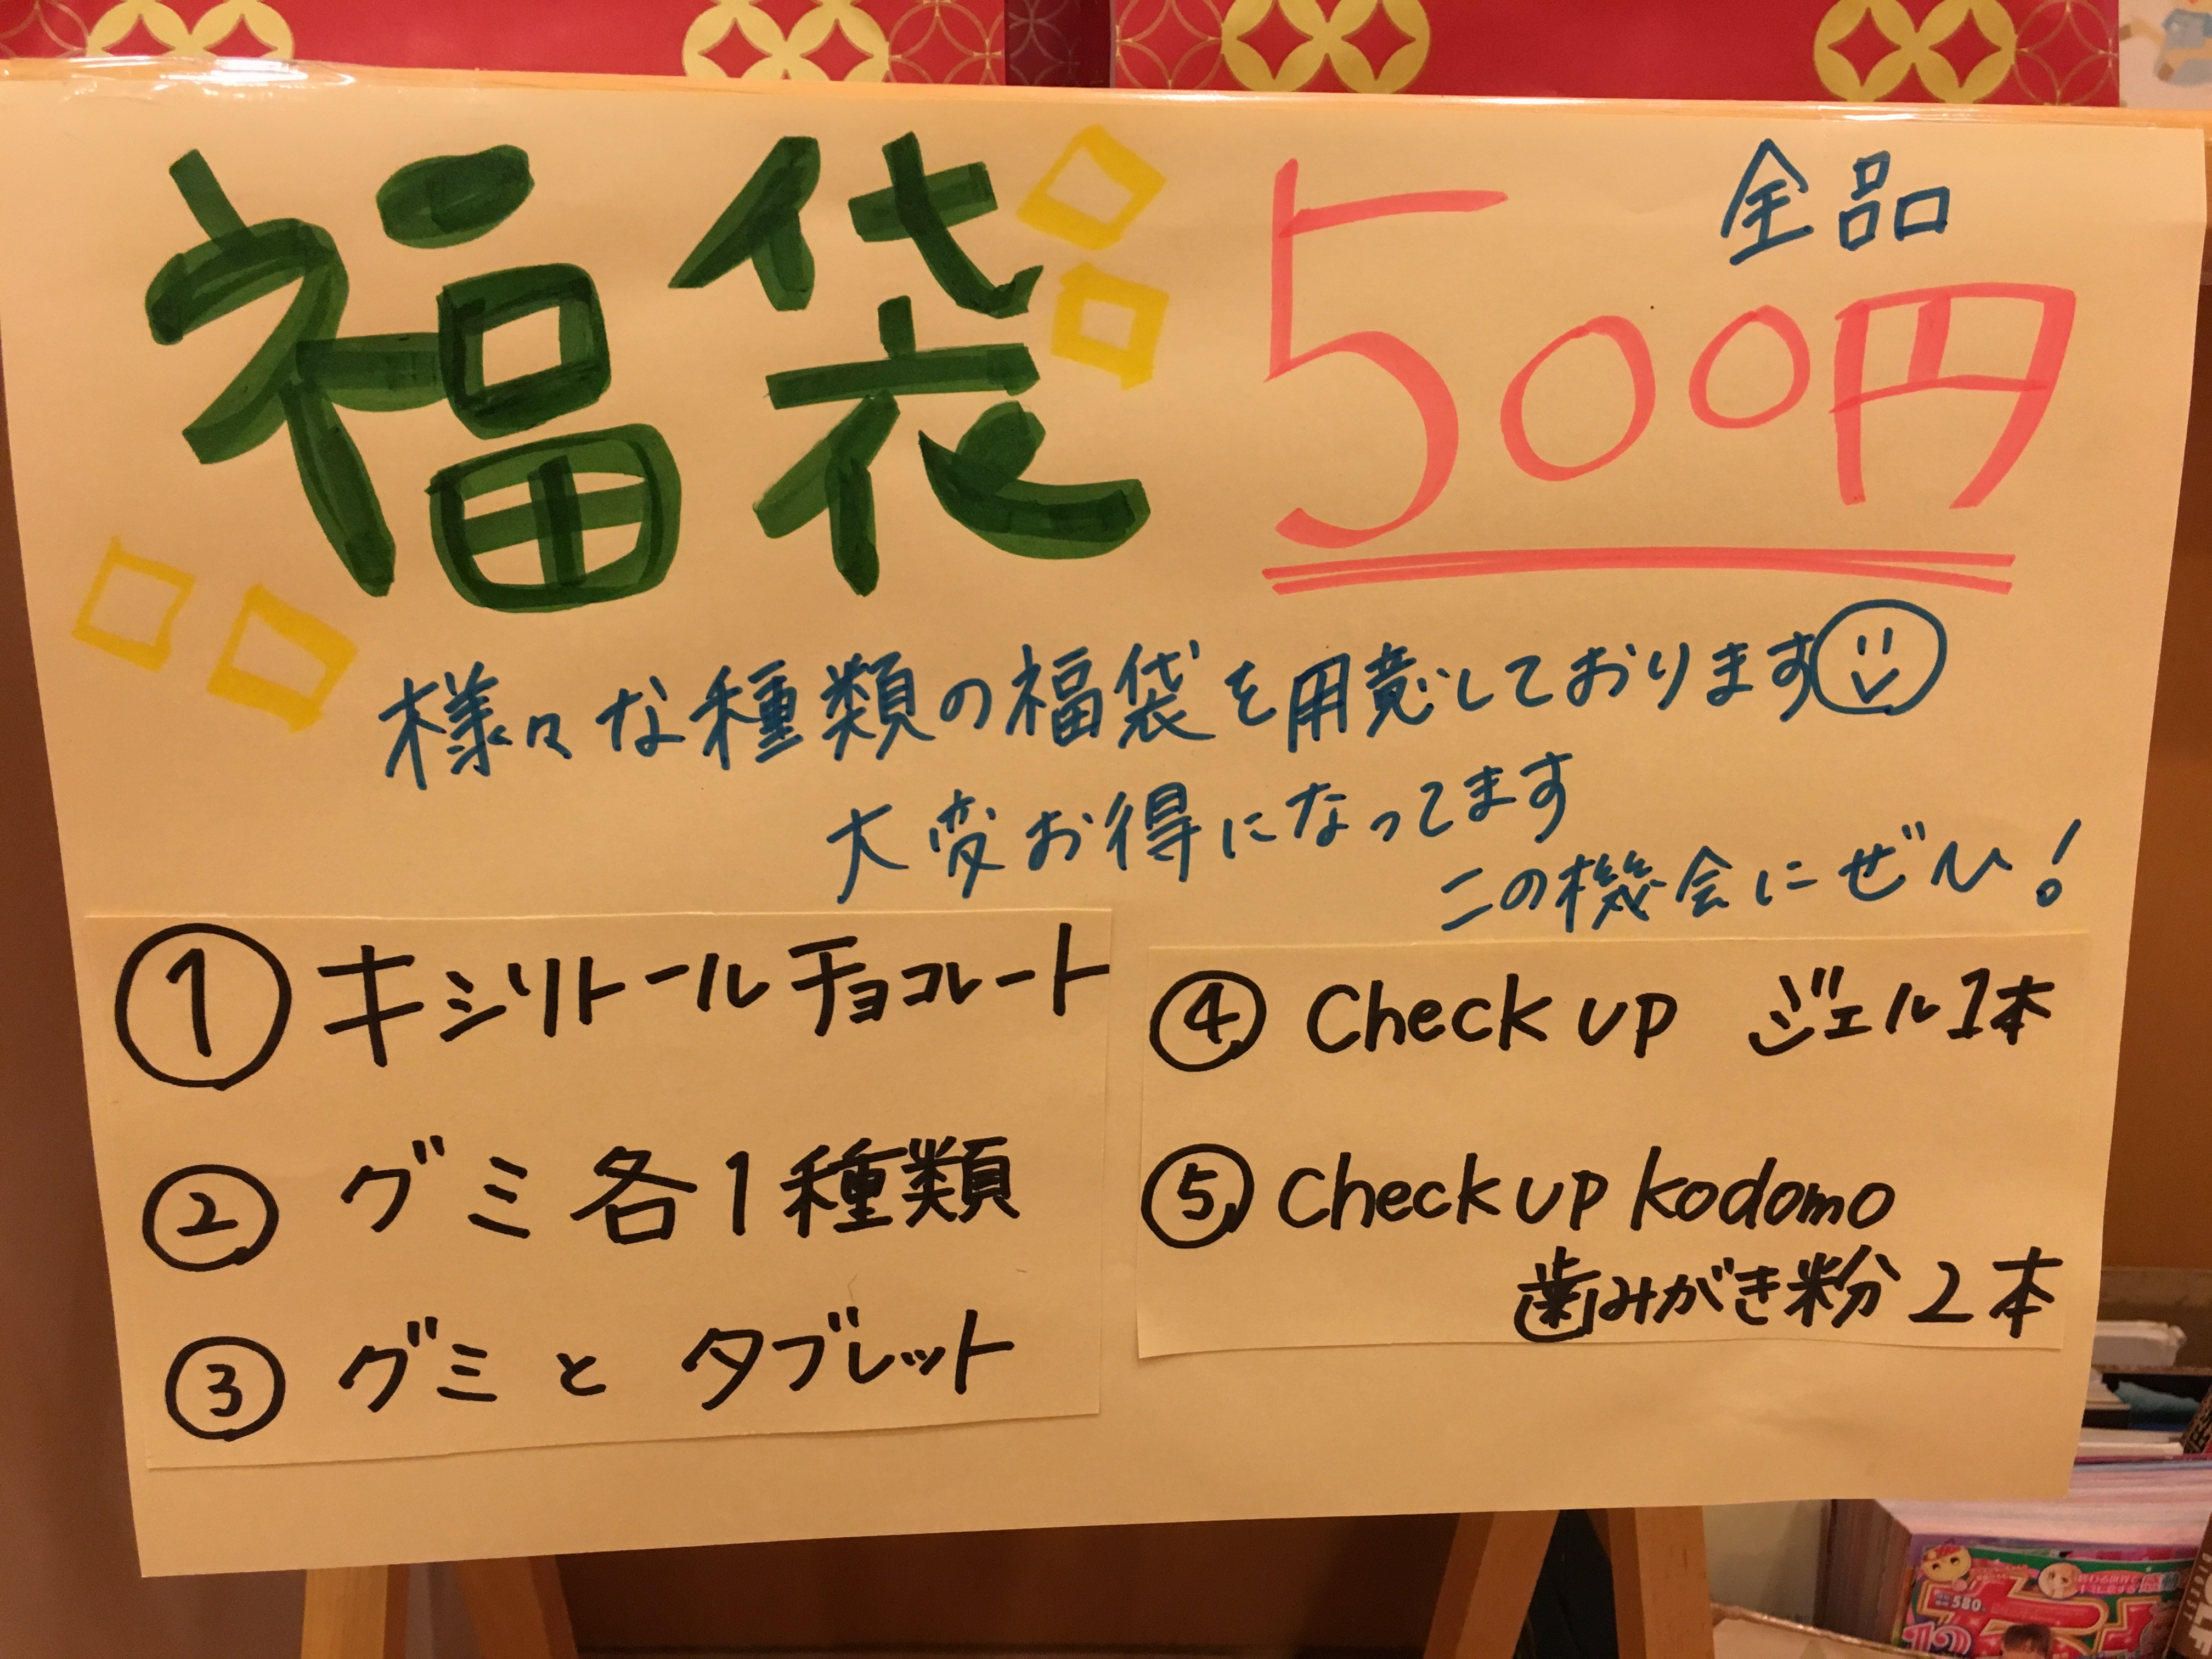 福袋
全品
500円
様々な種類の福袋を用意しております
大変お得になってます
この機会にぜひ!
① キシリトールチョコレート
② グミ 各1種類
③ グミ と タブレット
④ Check up ジェル1本
⑤ Check up kodomo
歯みがき粉 2本
580